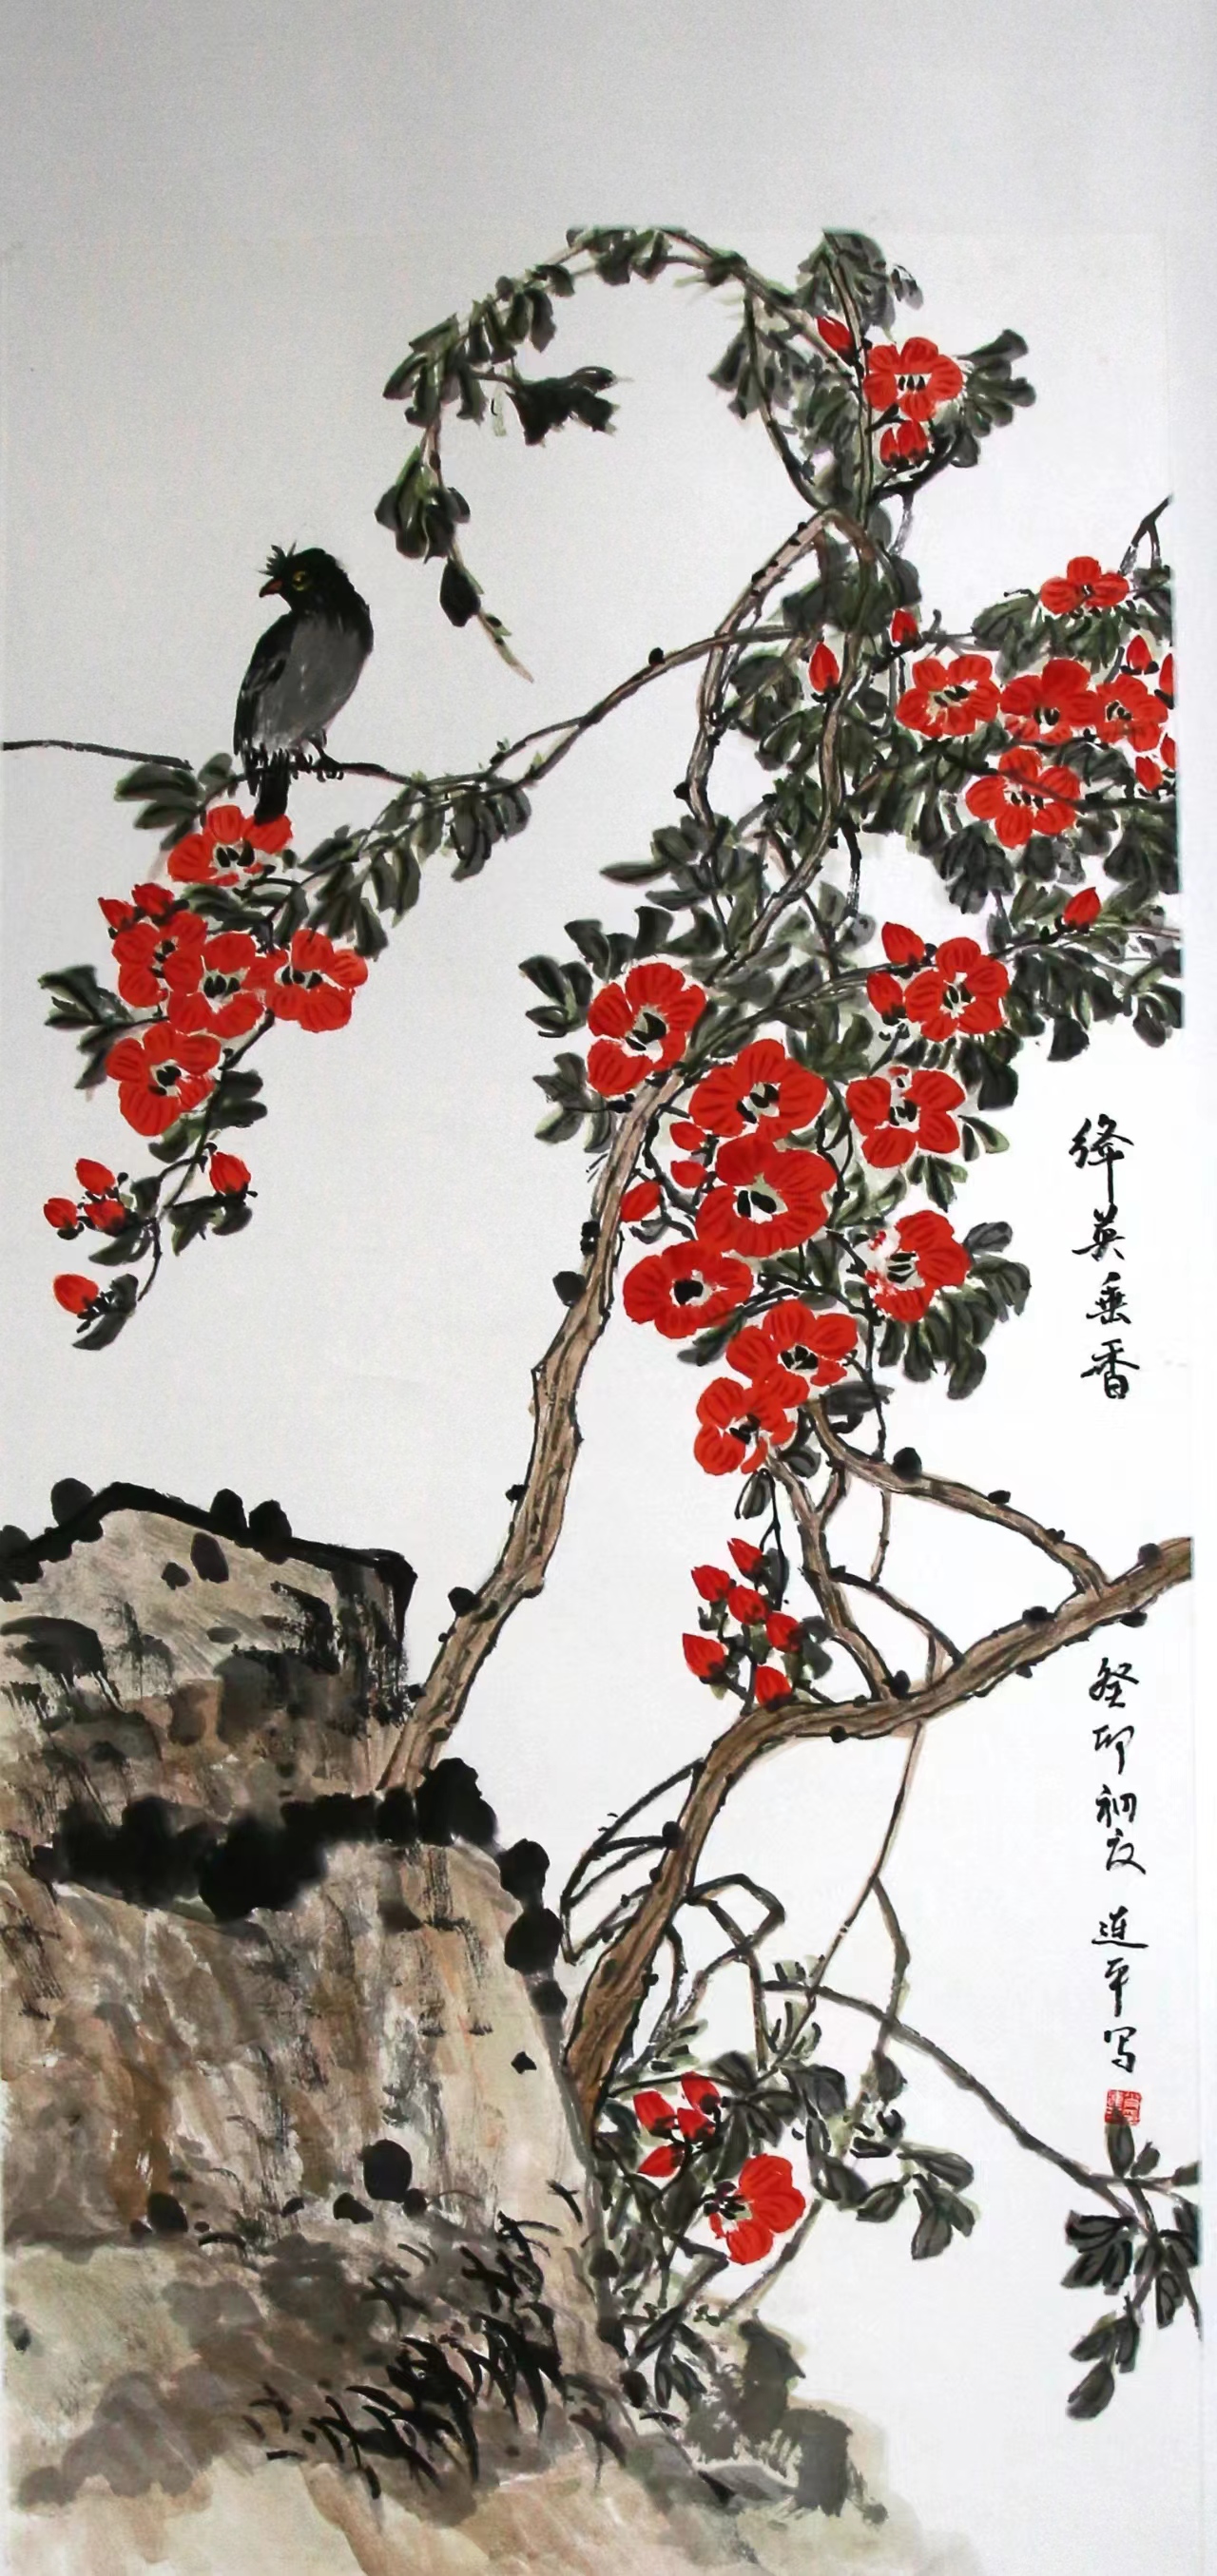 绛英垂香
癸卯初夏 连平写